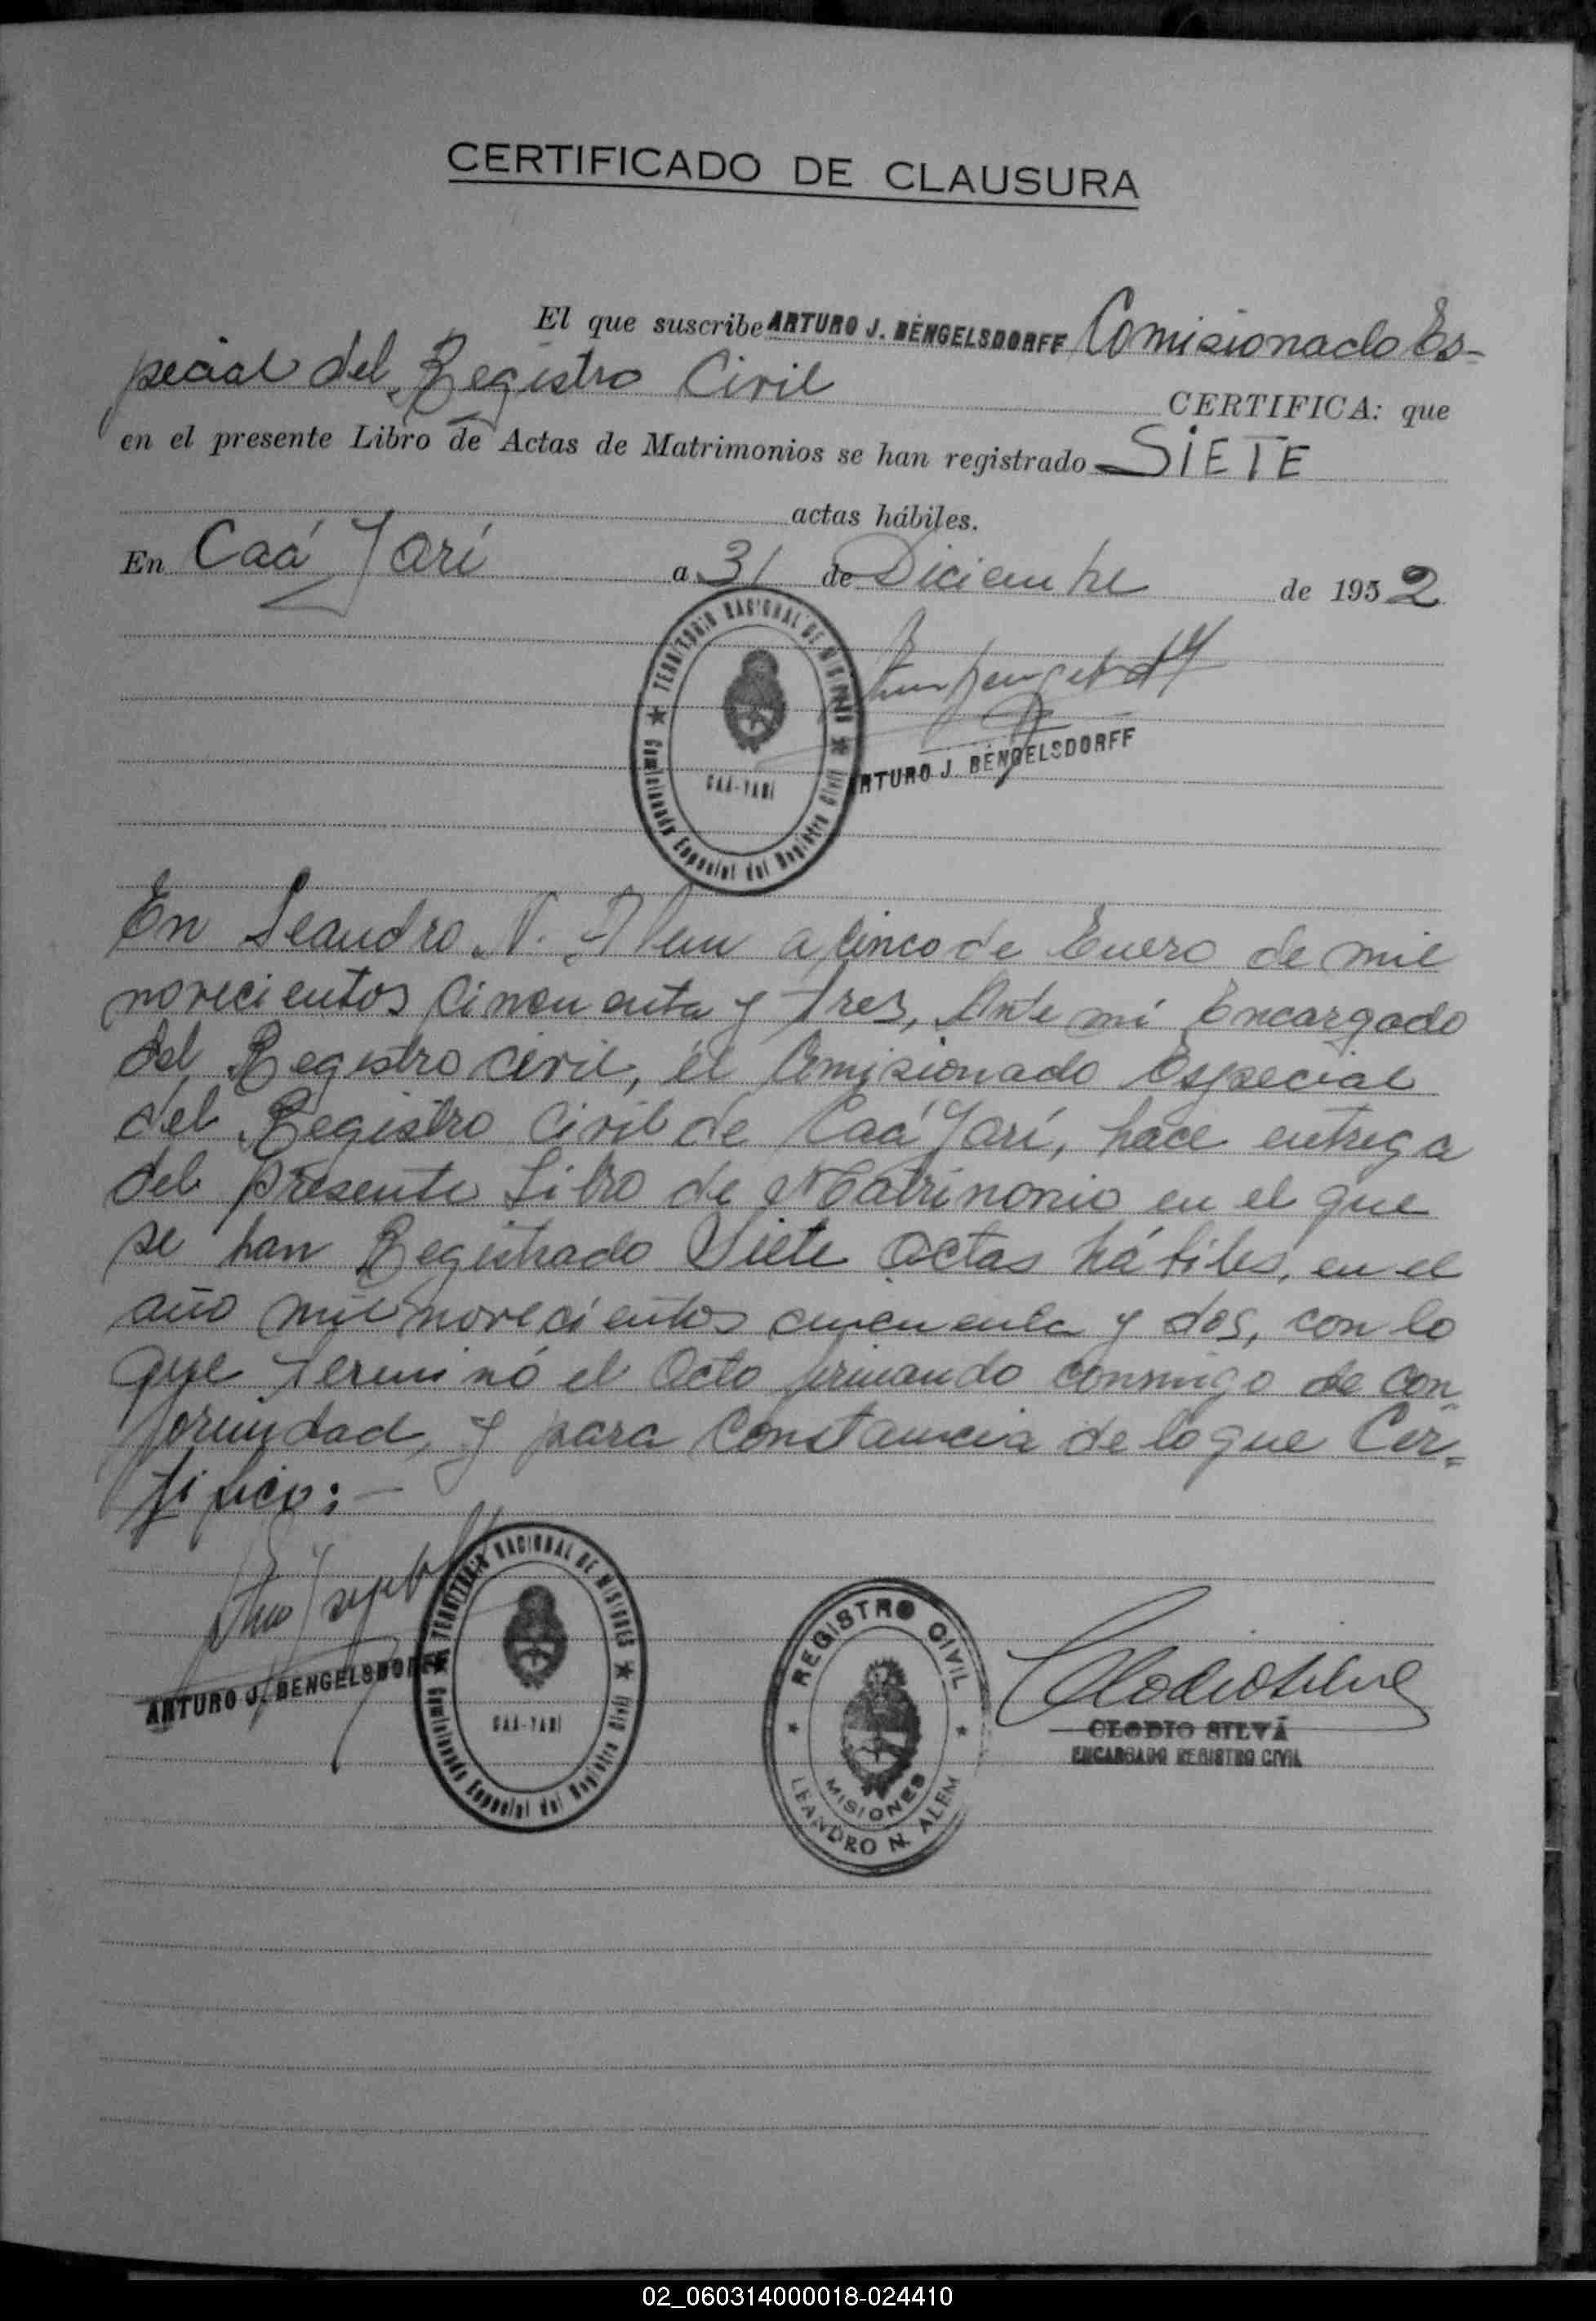 CERTIFICADO DE CLAUSURA
El que suscribe ARTURO J. BENGELSDORFF Comisionado Es-
pecial del Registro Civil CERTIFICA: que
en el presente Libro de Actas de Matrimonios se han registrado SIETE
actas hábiles.
En Caá Yarí a 31 de Diciembre de 1952
TERRITORIO NACIONAL DE MISIONES
CAÁ-YARÍ
Comisionado Especial del Registro Civil
ARTURO J. BENGELSDORFF
En Leandro N. Alem a cinco de Enero de mil
novecientos cincuenta y tres, Ante mí Encargado
del Registro civil, el Comisionado Especial
del Registro Civil de Caá Yarí, hace entrega
del presente Libro de Matrimonio en el que
se han Registrado Siete actas hábiles, en el
año mil novecientos cincuenta y dos, con lo
que terminó el Acto firmando conmigo de con
formidad, y para Constancia de lo que Cer=
tifico:-
ARTURO J. BENGELSDORFF
TERRITORIO NACIONAL DE MISIONES
CAÁ-YARÍ
Comisionado Especial del Registro Civil
REGISTRO CIVIL
MISIONES
LEANDRO N. ALEM
Clodio Silva
CLODIO SILVA
ENCARGADO REGISTRO CIVIL
02_060314000018-024410